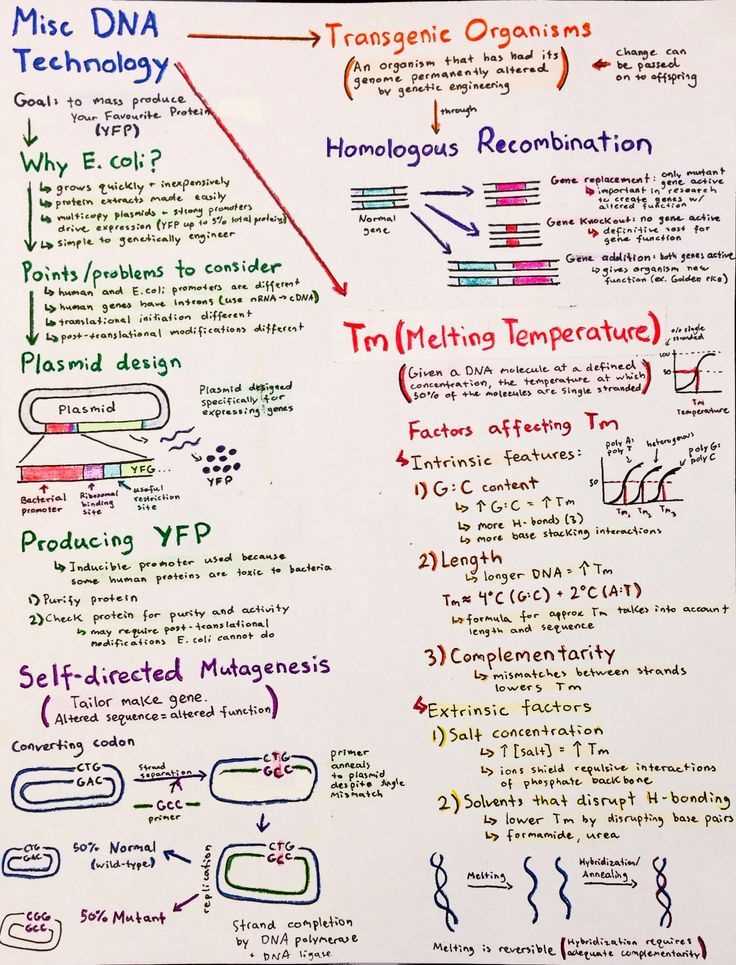 Misc DNA
Technology
Goal: to mass produce
Your Favourite Protein
(YFP)
Why E. coli?
↳ grows quickly + inexpensively
↳ protein extracts made easily
↳ multicopy plasmids + strong promoters
drive expression (YFP up to 5% total protein)
↳ simple to genetically engineer
Points/problems to consider
↳ human and E.coli promoters are different
↳ human genes have introns (use mRNA → cDNA)
↳ translational initiation different
↳ post-translational modifications different
Plasmid design
Plasmid
Plasmid designed
specifically for
expressing genes
YFG...
YFP
Bacterial
promoter
Ribosomal
binding
site
useful
restriction
site
Producing YFP
↳ Inducible promoter used because
some human proteins are toxic to bacteria
1) Purify protein
2) Check protein for purity and activity
↳ may require post-translational
modifications E.coli cannot do
Self-directed Mutagenesis
(Tailor make gene.
Altered sequence = altered function)
Converting codon
CTG
GAC
Strand
separation
GCC
primer
CTG
GCC
primer
anneals
to plasmid
despite single
mismatch
CTG
GAC
50% Normal
(wild-type)
replication
CTG
GCC
CGG
GCC
50% Mutant
Strand completion
by DNA polymerase
+ DNA ligase
Transgenic Organisms
(An organism that has had its
genome permanently altered
by genetic engineering)
change can
be passed
on to offspring
through
Homologous Recombination
Normal
gene
Gene replacement: only mutant
gene active
↳ important in research
to create genes w/
altered function
Gene Knockout: no gene active
↳ definitive test for
gene function
Gene addition: both genes active
↳ gives organism new
function (ex. Golden rice)
Tm (Melting Temperature)
(Given a DNA molecule at a defined
concentration, the temperature at which
50% of the molecules are single stranded)
% single
stranded
100
50
Tm
Temperature
Factors affecting Tm
↳ Intrinsic features:
poly A:
poly T
heterogenous
poly G:
poly C
50
Tm1 Tm2 Tm3
1) G:C content
↳ ↑ G:C = ↑ Tm
↳ more H-bonds (3)
↳ more base stacking interactions
2) Length
↳ longer DNA = ↑ Tm
Tm ≈ 4°C (G:C) + 2°C (A:T)
↳ formula for approx Tm takes into account
length and sequence
3) Complementarity
↳ mismatches between strands
lowers Tm
↳ Extrinsic factors
1) Salt concentration
↳ ↑ [salt] = ↑ Tm
↳ ions shield repulsive interactions
of phosphate backbone
2) Solvents that disrupt H-bonding
↳ lower Tm by disrupting base pairs
↳ formamide, urea
Melting
Hybridization/
Annealing
Melting is reversible (Hybridization requires
adequate complementarity)